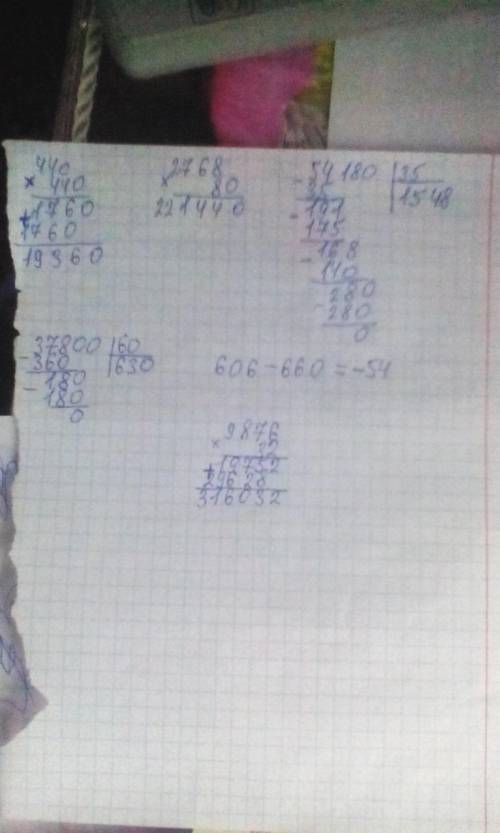 440
× 440
+ 1760
1760
19360
2768
× 80
221440
- 54180 | 35
35 | 1548
- 191
175
- 168
140
- 280
- 280
0
- 37800 | 60
360 | 630
- 180
180
0
606 - 660 = -54
9876
× 32
+ 19752
29628
316032